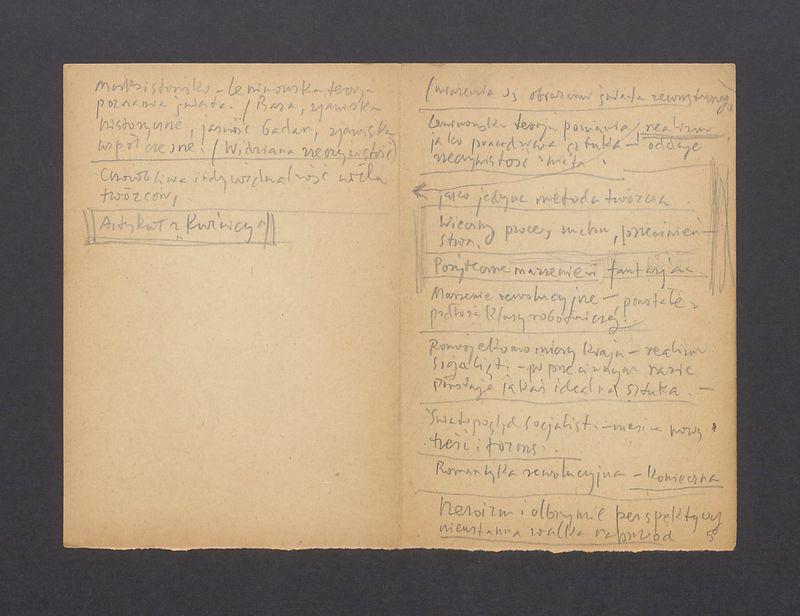 Marksistowsko-Leninowska teoria
poznania świata. (Baza, zjawiska
historyczne, jasność badań, zjawiska
współczesne. (Widziana rzeczywistość)
Chorobliwa indywidualność wielu
twórców,
Artykuł z Kuźnicy
(wrażenia są obrazami świata zewnętrznego)
Leninowska teoria poznania, realizm
jako prawdziwa sztuka – oddaje
rzeczywistość świata.
jako jedyna metoda twórcza.
Wieczny proces ruchu, przeciwień-
stwa.
Pożyteczne marzenie i fantazja
Marzenie rewolucyjne – powstałe z
podłoża klasy robotniczej.
Rozwój ekonomiczny kraju – realizm
socjalist. – w przeciwnym razie
powstaje jakaś idealna sztuka. –
Światopogląd socjalist. – niesie nową
treść i formę.
Romantyka rewolucyjna – konieczna
heroizm i olbrzymie perspektywy
nieustanna walka naprzód 5